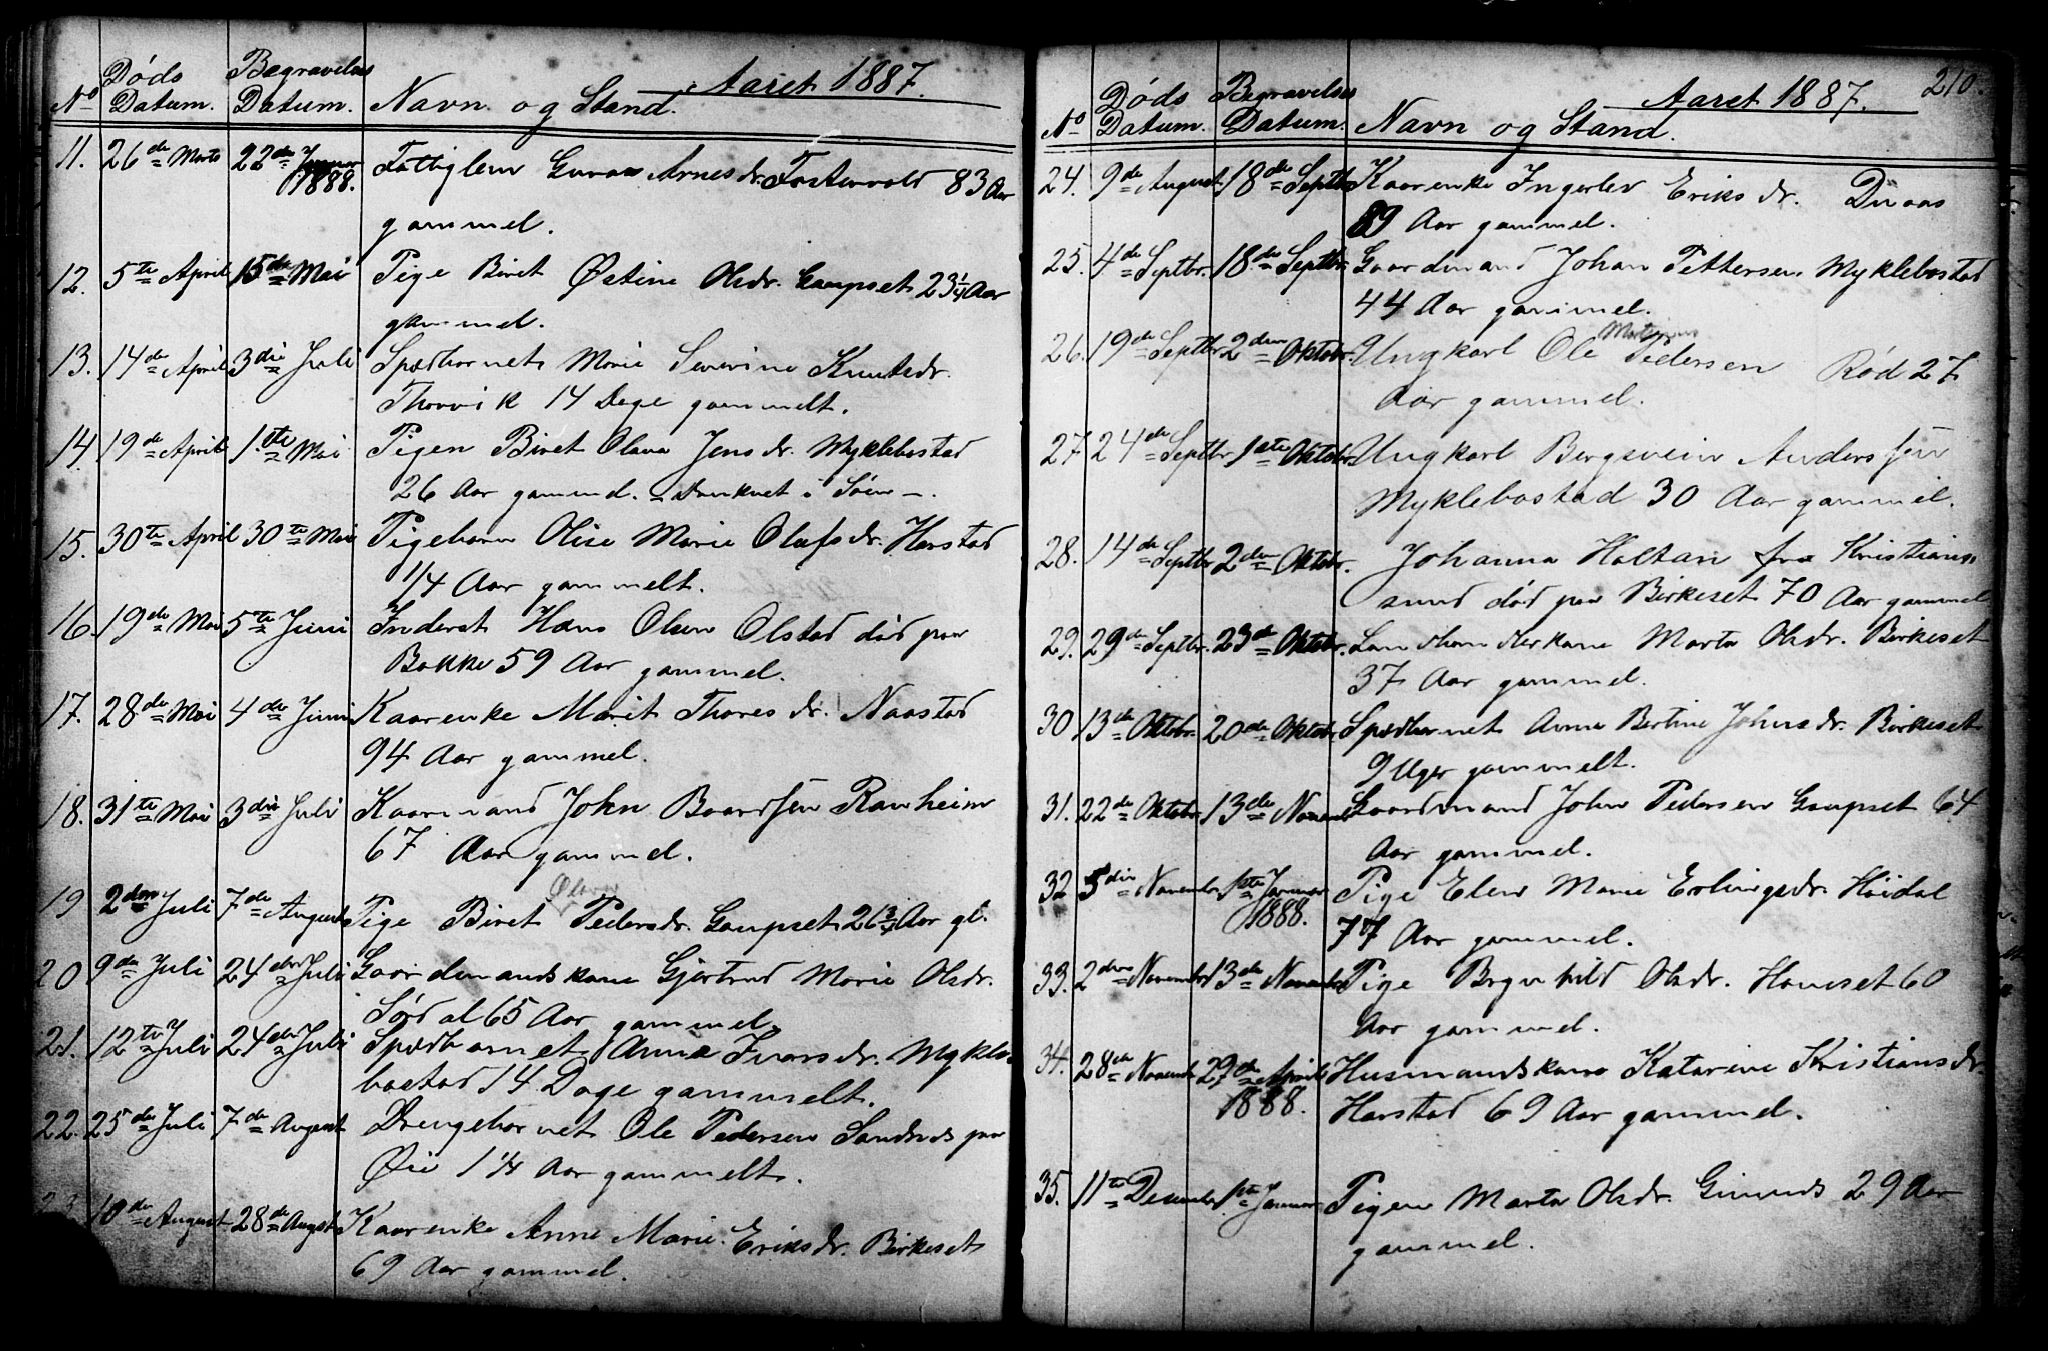 Aaret 1887.
No Døds Datum. Begravelses Datum. Navn og Stand.
11. 26de Marts 22de Januar 1888. Fattiglem Guraa Arnesdr. Fostervold 83 Aar
gammel.
12. 5te April 15de Mai Pige Beret Østine Olsdr. Gaupset 23 1/4 Aar
gammel.
13. 14de April 3die Juli Spædbarnet Marie Severine Knutsdr.
Thorvik 14 Dage gammelt.
14. 19de April 1ste Mai Pigen Beret Olava Jensdr. Myklebostad
26 Aar gammel. – Druknet i Søen –.
15. 30te April 30te Mai Pigebarn Olise Marie Olufsdr. Harstad
1/4 Aar gammelt.
16. 19de Mai 5te Juni Inderst Hans Olsen Olstad død paa
Bakke 59 Aar gammel.
17. 28de Mai 4de Juni Kaarenke Marit Thoresdr. Naastad
94 Aar gammel.
18. 31te Mai 3die Juli Kaarmand John Baardsen Ranheim
67 Aar gammel.
19 2den Juli 7de August Pige Beret Olava Pedersdr. Gaupset 26 3/4 Aar gl.
20 9de Juli 24de Juli Gaardmandskone Gjertrud Marie Olsdr.
Sørdal 65 Aar gammel.
21. 12te Juli 24de Juli Spædbarnet Anna Ivarsdr. Mykle-
bostad 14 Dage gammelt.
22. 25de Juli 7de August Drengebarnet Ole Pedersen Sandnes paa
Øie 1 1/4 Aar gammelt.
23. 10de August 28de Augst Kaarenke Anne Marie Eriksdr. Birkeset
69 Aar gammel.
210.
Aaret 1887.
No Døds Datum. Begravelses Datum. Navn og Stand.
24. 9de August 18de Septbr. Kaarenke Ingerlev Eriksdr. Duaas
89 Aar gammel.
25. 4de Septbr. 18de Septbr. Gaardmand Johan Pettersen Myklebostad
44 Aar gammel.
26. 19de Septbr. 2den Oktobr. Ungkarl Ole Pedersen Rød 27
Aar gammel.
27 24de Septbr. 1ste Oktobr. Ungkarl Bergsvein Anderssen
Myklebostad 30 Aar gammel.
28. 14de Septbr. 2den Oktobr. Johanna Holtan fra Kristians
sund død paa Birkeset 70 Aar gammel
29. 29de Septbr. 23de Oktobr. Landhandlerkone Marta Olsdr. Birkeset
37 Aar gammel.
30 13de Oktobr. 20de Oktobr. Spædbarnet Anne Bertine Johnsdr. Birkeset
9 Uger gammelt.
31. 22de Oktobr. 13de Novembr. Gaardmand John Pedersen Gaupset 64
Aar gammel.
32 5die November 1ste Januar 1888. Pige Elen Marie Erlingsdr. Høidal
77 Aar gammel.
33. 2den November 13de November Pige Brynhild Olsdr. Haveset 60
Aar gammel.
34. 28de Novembr 29de April 1888. Husmandskone Katarine Kristiansdr.
Harstad 69 Aar gammel.
35. 11te December 1ste Januar Pigen Marta Olsdr. Gimnes 29 Aar
gammel.